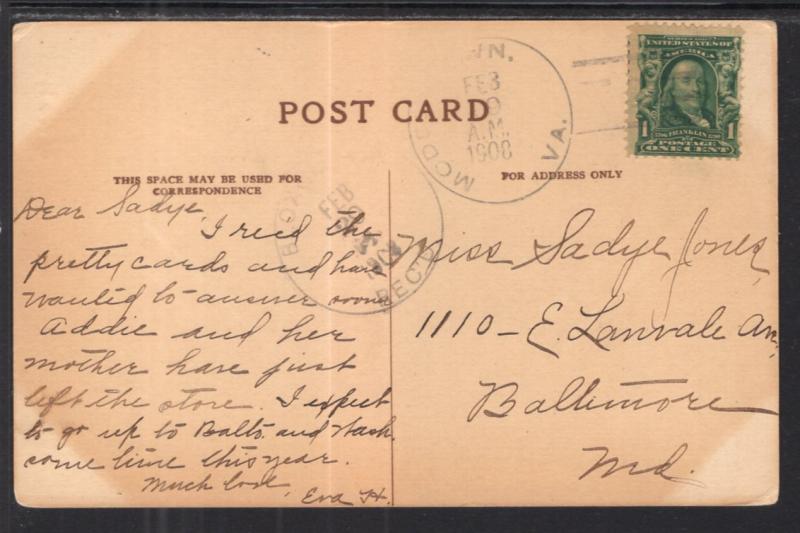 POST CARD
THIS SPACE MAY BE USED FOR
CORRESPONDENCE
FOR ADDRESS ONLY
WN.
FEB
A.M.
1908
VA.
FEB
REC'D
SERIES 1902
UNITED STATES OF
AMERICA
1 FRANKLIN 1
POSTAGE
ONE CENT
Dear Sadye,
I recd the
pretty cards and have
wanted to answer
Addie and her
mother have just
left the store. I expect
to go up to Balto. and Wash.
some time this year.
Much love,
Eva H.
Miss Sadye Jones,
1110 - E. Lanvale Av,
Baltimore
Md.